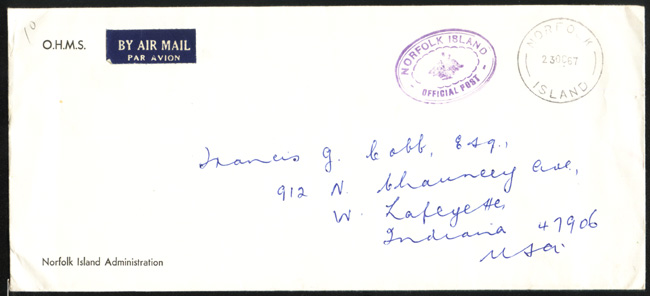 10
O.H.M.S.
BY AIR MAIL
PAR AVION
NORFOLK ISLAND
OFFICIAL POST
NORFOLK
23OC67
ISLAND
Francis G. Cobb, Esq.,
912 N. Chauncey Ave,
W. Lafeyette,
Indiana 47906
USA.
Norfolk Island Administration